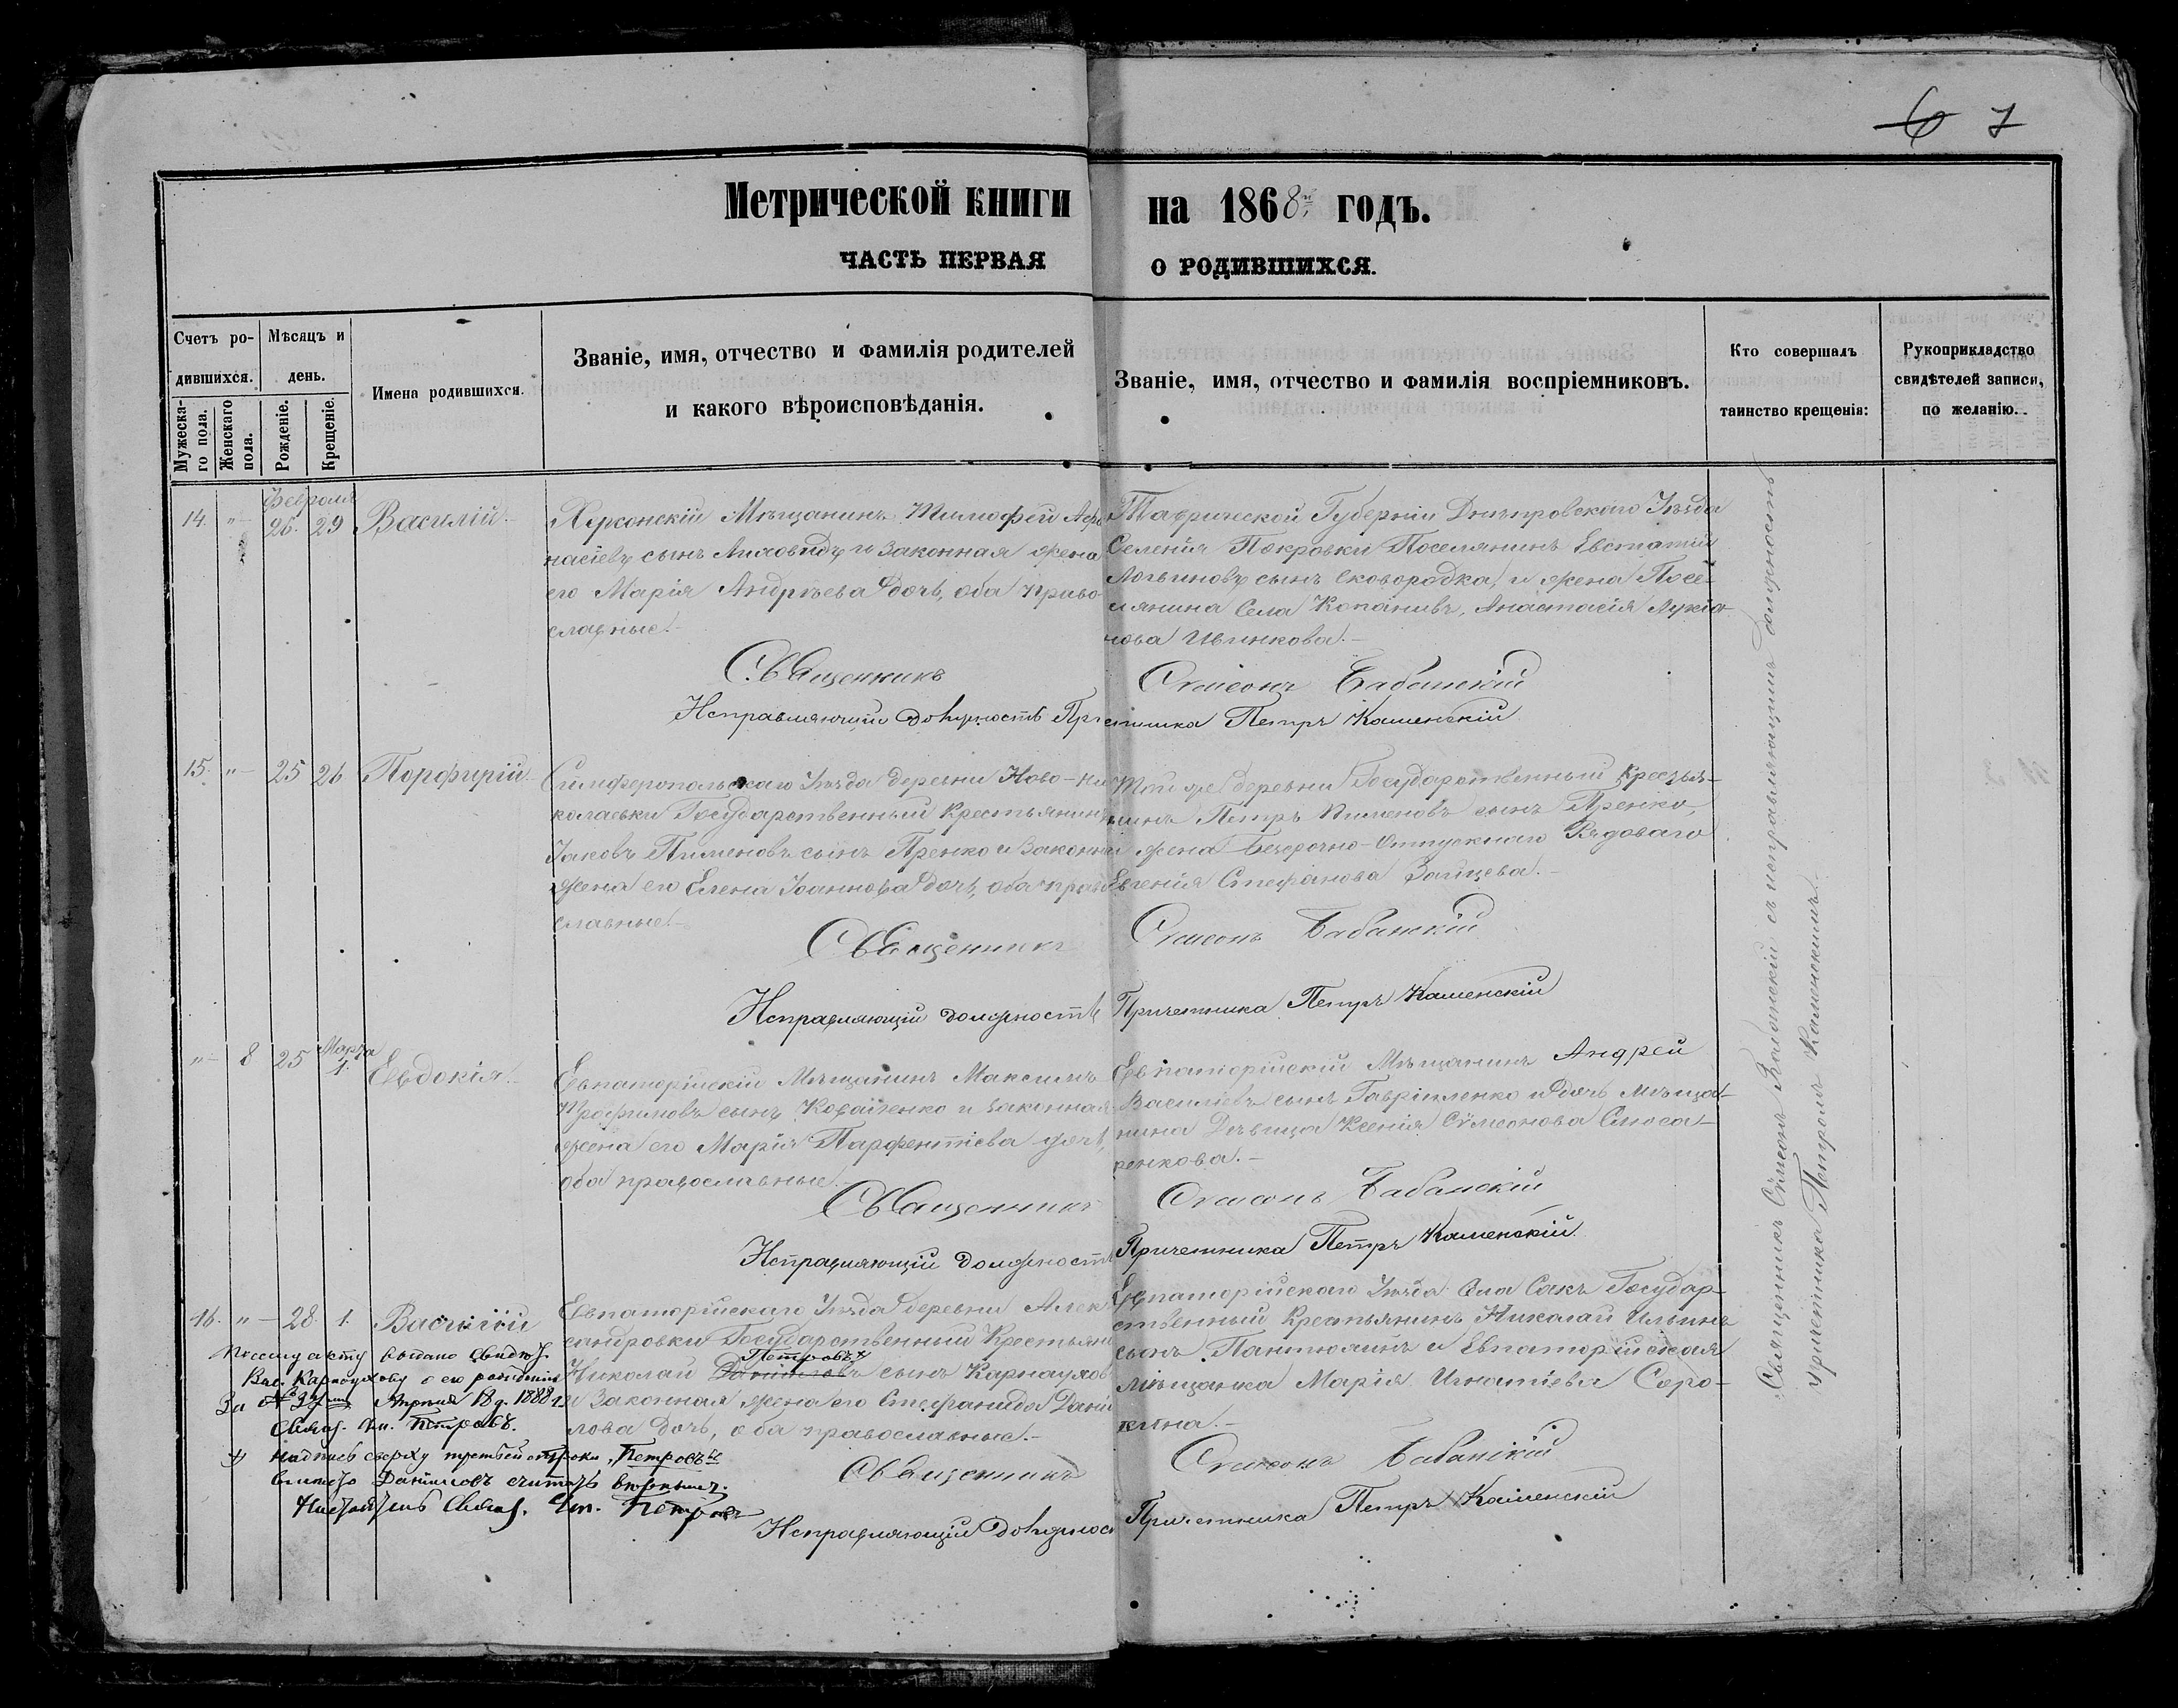 6 7
Метрической книги на 1868й годъ.
ЧАСТЬ ПЕРВАЯ О РОДИВШИХСЯ.
Счетъ ро-
дившихся.
Мужеска-
го пола.
Женскаго
пола.
Мѣсяцъ и
день.
Рожденіе.
Крещеніе.
Имена родившихся.
Званіе, имя, отчество и фамилія родителей
и какого вѣроисповѣданія.
Званіе, имя, отчество и фамилія воспріемниковъ.
Кто совершалъ
таинство крещенія:
Рукоприкладство
свидѣтелей записи,
по желанію.
Февраля
14. "– 26. 29 Василій.
Херсонскій Мѣщанинъ Тимофей Афа-
насіевъ сынъ и законная жена
его Марія Андрѣева дочь, оба право-
славные.–
Таврической Губерніи Днѣпровскаго Уѣзда
Селенія Покровки Поселянинъ Евстатій
Логвиновъ сынъ Сковородка, и жена Посе-
лянина Села Копанивъ, Анастасія Лукіа-
нова Ивинкова.–
Священникъ Симеонъ Бабанскій
Исправляющій должность Причетника Петръ Каменскій
15. "– 25 26 Порфирій
Симферопольскаго Уѣзда деревни Ново-Ни-
колаевки Государственный Крестьянинъ
Іаковъ Пименовъ сынъ Яренко и законная
жена его Елена Іоаннова дочь, оба право-
славные.–
Той же деревни Государственный Крестья-
нинъ Петръ Пименовъ сынъ Яренко,
и жена Безсрочно-Отпускнаго Рядоваго
Евгенія Стефанова Зайцева.–
Священникъ Симеонъ Бабанскій
Исправляющій должность Причетника Петръ Каменскій
"– 8 25 Марта 1. Евдокія.
Евпаторійскій Мѣщанинъ Максимъ
Трофимовъ сынъ и законная
жена его Марія Парфентіева дочь,
оба православные.–
Евпаторійскій Мѣщанинъ Андрей
Василіевъ сынъ Гавриленко и дочь мѣща-
нина Дѣвица Ксенія Сѵмеонова Слюса-
ренкова.–
Священникъ Симеонъ Бабанскій
Исправляющій должность Причетника Петръ Каменскій
16. "– 28. 1. Василій
Евпаторійскаго Уѣзда деревни Алек-
сандровки Государственный Крестьянинъ
Петровъ х
Николай Даниловъ сынъ Карнауховъ
и Законная жена его Стефанида Дани-
лова дочь, оба православные.–
Евпаторійскаго Уѣзда Села Сакъ Государ-
ственный Крестьянинъ Николай Ильинъ
сынъ Пантюлинъ и Евпаторійская
мѣщанка Марія Игнатіева Соро-
кина.–
Священникъ Симеонъ Бабанскій
Исправляющій должность Причетника Петръ Каменскій
По сему акту выдано свидѣт.
Вас. Карнаухову о его рожденіи
За № Апрѣля 18 д. 1888 г.
Свящ. Петровъ.
х надпись сверху третьей строки "Петровъ"
вмѣсто Даниловъ считать вѣрнымъ.
Настоятель Свящ. Петровъ
Священникъ Сѵмеонъ Бабанскій съ исправляющимъ должность
причетника Петромъ Каменскимъ.